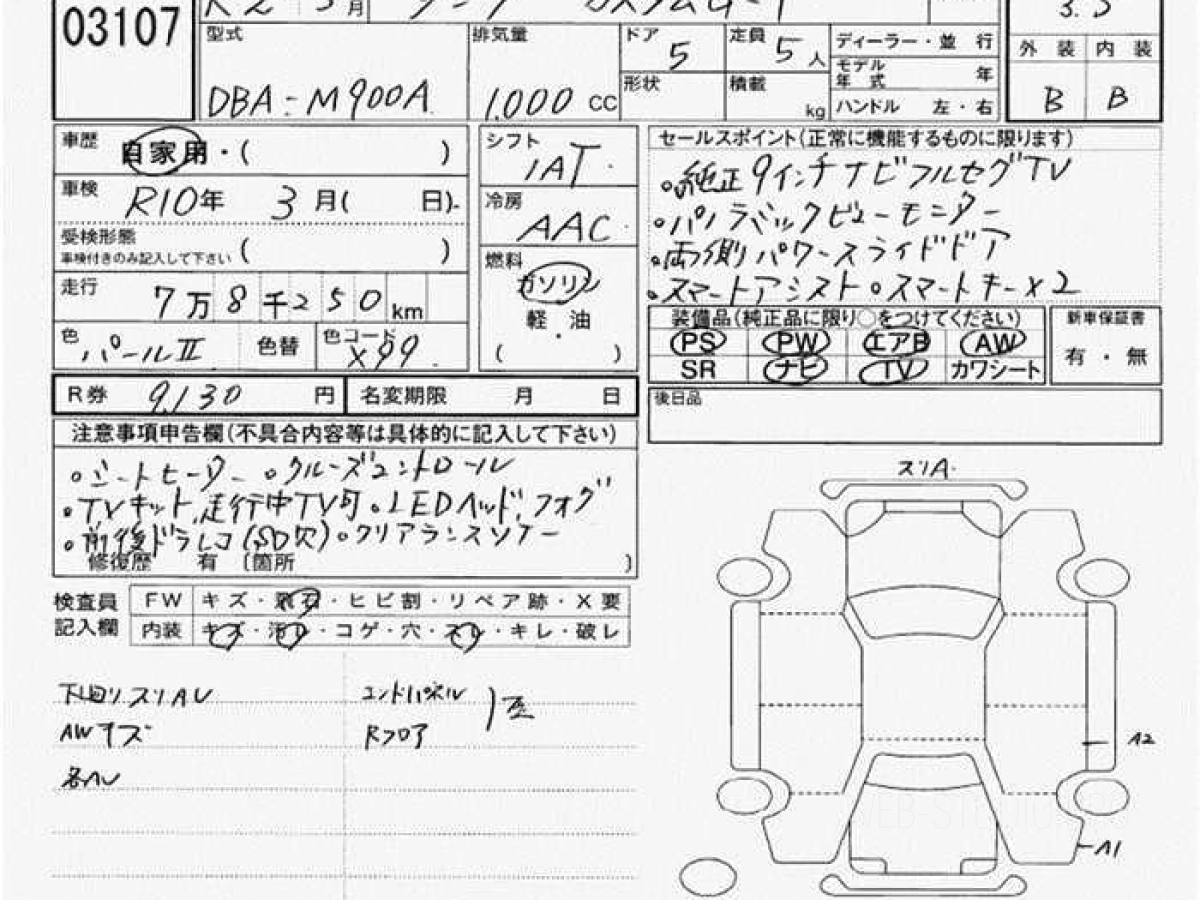 03107
R2 3月
3.5
型式 排気量 ドア 5 定員 5人 ディーラー・並 行 外 装 内 装
DBA-M900A 1.000 CC 形状 積載 kg モデル年式 年 B B
ハンドル 左・右
車歴 自家用・( )
車検 R10年 3月( 日)
受検形態
車検付きのみ記入して下さい ( )
走行 7万8千250km
色 パールⅡ 色替 色コード X99
シフト IAT
冷房 AAC
燃料 ガソリン
軽・油
( ・ )
セールスポイント(正常に機能するものに限ります)
。純正9インチナビフルセグTV
。パノラバックビューモニター
。両側パワースライドドア
。スマートアシスト。スマートキーx2
装備品(純正品に限り○をつけてください)
PS PW エアB AW
SR ナビ TV カワシート
新車保証書
有・無
R券 9.130 円 名変期限 月 日
後日品
注意事項申告欄(不具合内容等は具体的に記入して下さい)
。シートヒーター 。クルーズコントロール
。TVキット,走行中TV可。LEDヘッド,フォグ
。前後ドラレコ(SD欠)。クリアランスソナー
修復歴 有 〔箇所 〕
検査員 FW キズ・飛石・ヒビ割・リペア跡・X要
記入欄 内装 キズ・汚レ・コゲ・穴・スレ・キレ・破レ
下回リスリAU エンドパネル
AWキズ Rフロア
各AU
スリA
A2
A1